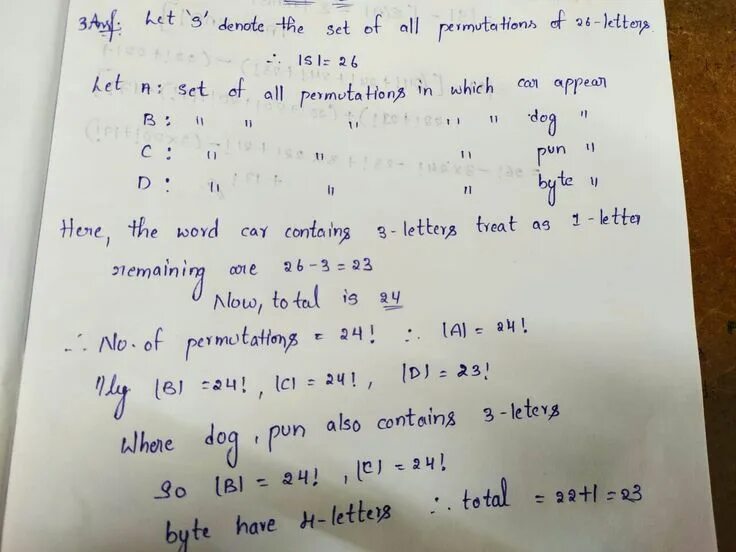 3Ans: Let 'S' denote the set of all permutations of 26-letters.
∴ |S| = 26
Let A: set of all permutations in which car appear
B: " " " " " dog "
C: " " " pun "
D: " " " byte "
Here, the word car contains 3-letters treat as 1-letter
remaining are 26-3=23
Now, total is 24
∴ No. of permutations = 24! ∴ |A| = 24!
||ly |B| = 24!, |C| = 24!, |D| = 23!
Where dog, pun also contains 3-leters
So |B| = 24!, |C| = 24!
byte have 4-letters ∴ total = 22+1 = 23